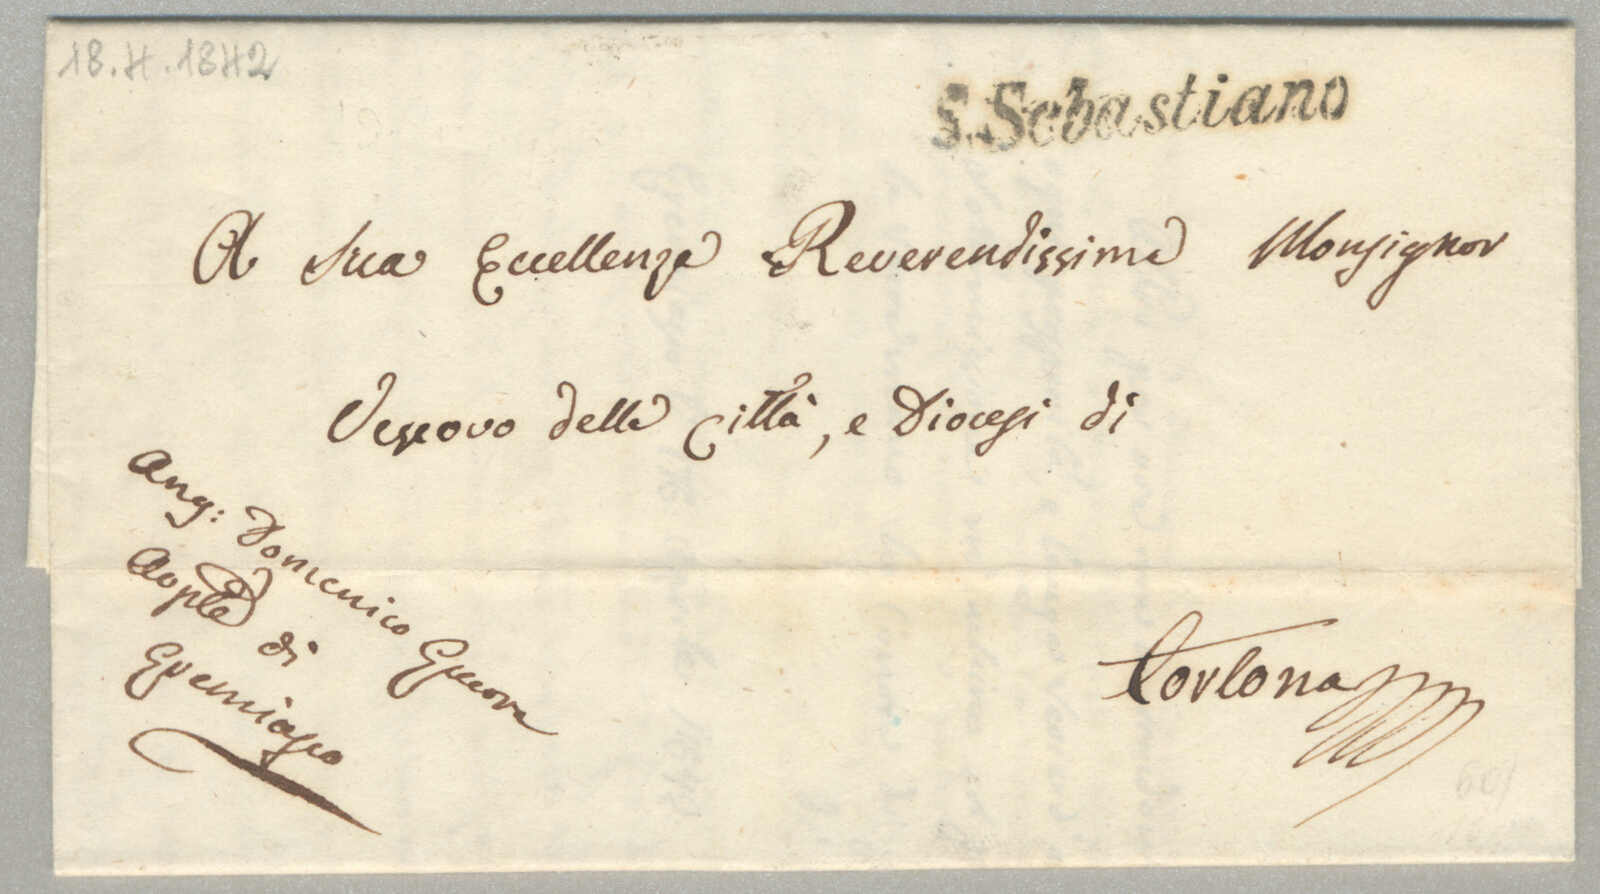 18.4.1842
S. Sebastiano
A Sua Eccellenza Reverendissima Monsignor
Vescovo della Città, e Diocesi di
Tortona
Ang: Domenico
di